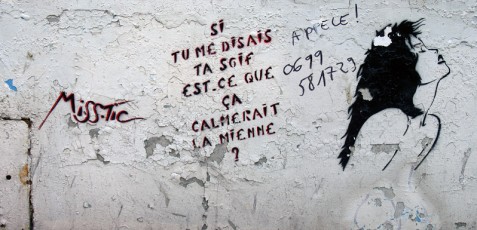 MISS.TIC
SI
TU ME DISAIS
TA SOIF
EST-CE QUE
ÇA
CALMERAIT
LA MIENNE
?
APPELE!
0699
581729